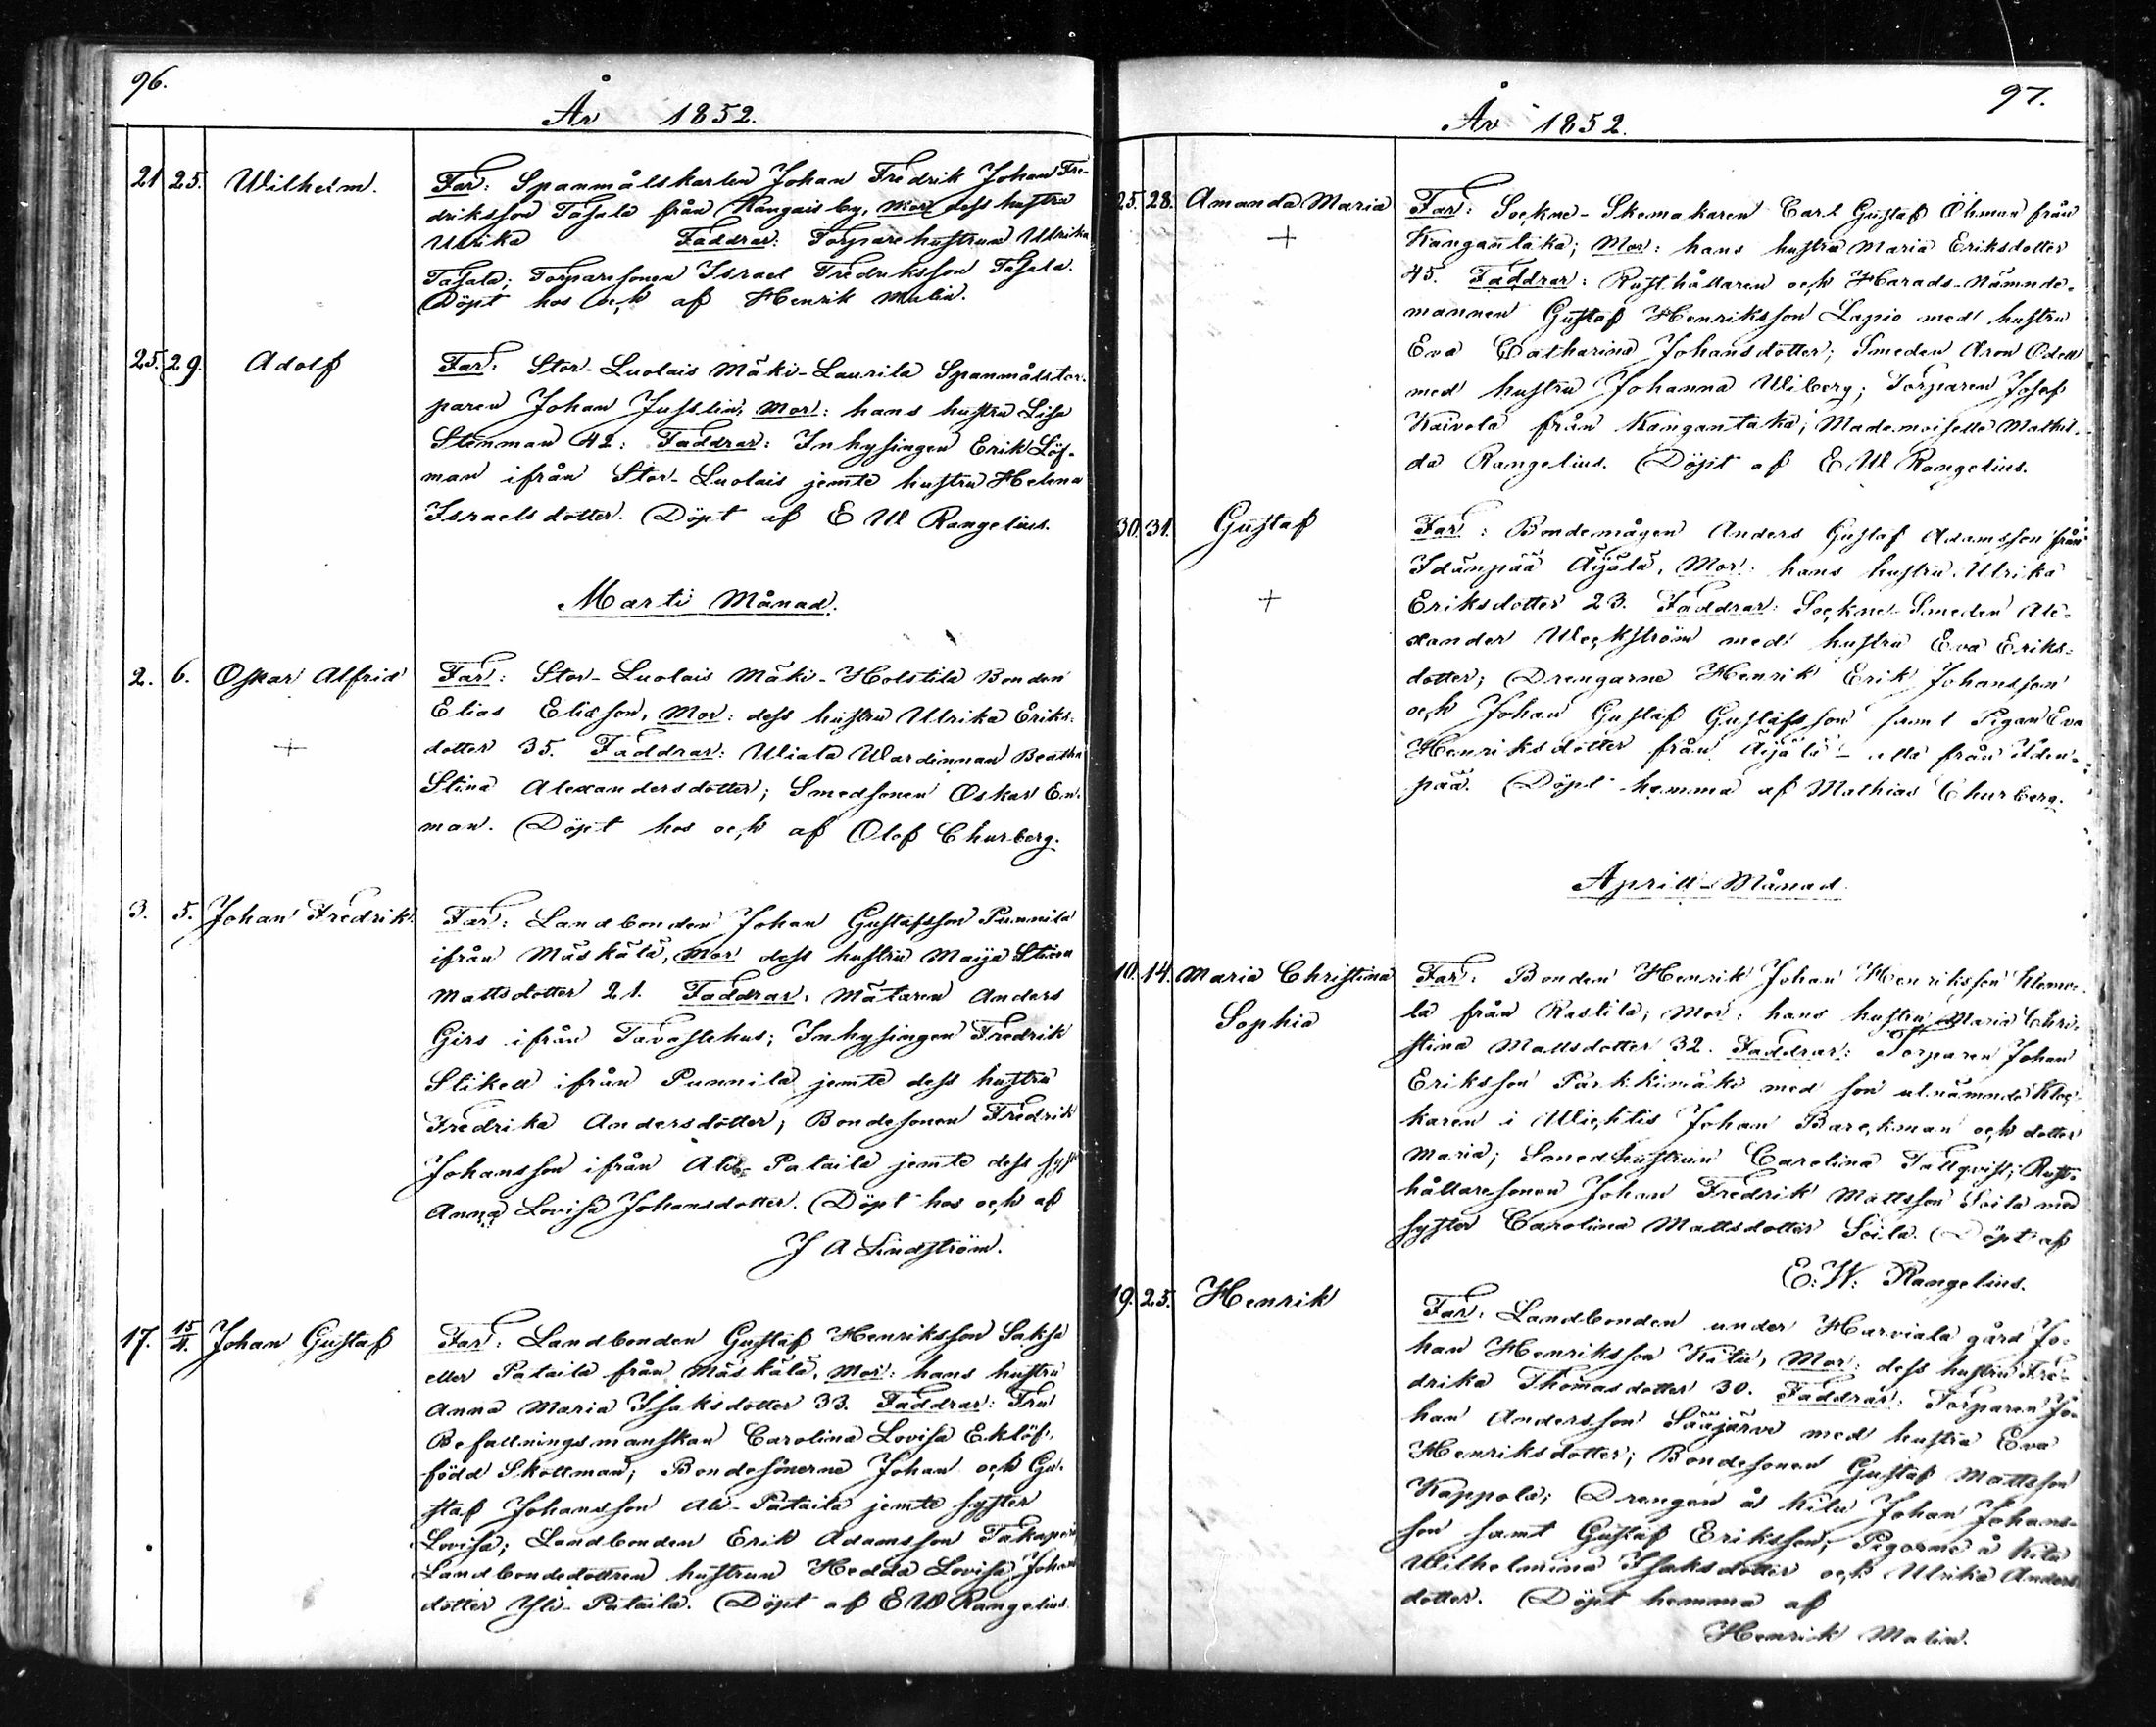 96.
År 1852.
21 25. Wilhelm. Far: Spanmålskarlen Johan Fredrik Johan Fre-
driksson Tasala från Kangais by, Mor dess hustru
Ulrika Faddrar: Torparehustrun Ulrika
Tasala; Torparesonen Israel Fredriksson Tasala.
Döpt hos och af Henrik Malin.
25. 29. Adolf Far: Stor-Luolais Mäki-Laurila Spanmålstor-
paren Johan Jusslin, Mor: hans hustru Lisa
Stenman 42: Faddrar: Inhysingen Erik Löf-
man ifrån Stor-Luolais jemte hustru Helena
Israelsdotter. Döpt af E W Rangelius.
Marti Månad.
2. 6. Oskar Alfrid Far: Stor-Luolais Mäki-Holstila Bonden
Elias Eliasson, Mor: dess hustru Ulrika Eriks-
+ dotter 35. Faddrar: Wiala Wardinman Beatha
Stina Alexandersdotter; Smedsonen Oskar En-
man. Döpt hos och af Olof Churberg.
3. 5. Johan Fredrik. Far: Landbonden Johan Gustafsson Punnila
ifrån Mäskälä, Mor dess hustru Maija Stina
Mattsdotter 21. Faddrar: Mätaren Anders
Girs ifrån Tavastehus; Inhysingen Fredrik
Stikell ifrån Punnila jemte dess hustru
Fredrika Andersdotter; Bondesonen Fredrik
Johansson ifrån Ali- Pataila jemte dess syst
Anna Lovisa Johansdotter. Döpt hos och af
J A Lindström.
17. 15/4. Johan Gustaf Far: Landbonden Gustaf Henriksson Saksa
eller Pataila från Mäskälä, Mor: hans hustru
Anna Maria Isaksdotter 33. Faddrar: Fru
Befallningsmanskan Carolina Lovisa Eklöf,
född Skottman; Bondesönerne Johan och Gu-
staf Johansson Ali-Pataila jemte syster
Lovisa; Landbonden Erik Adamsson Takaperä
Landbondedottren hustrun Hedda Lovisa Johans
dotter Yli-Pataila. Döpt af E W Rangelius.
97.
År 1852.
25. 28. Amanda Maria Far: Sockne-Skomakaren Carl Gustaf Öhman från
+ Kangantaka; Mor: hans hustru Maria Eriksdotter
45. Faddrar: Rusthållaren och Härads-Nämnde-
mannen Gustaf Henriksson Lapio med hustru
Eva Catharina Johansdotter; Smeden Aron Odell
med hustru Johanna Wiberg; Torparen Josef
Kaivola från Kangantaka; Mademoiselle Mathil-
da Rangelius. Döpt af E W Rangelius.
30. 31. Gustaf Far: Bondemågen Anders Gustaf Adamsson från
Idänpää Äijälä, Mor: hans hustru Ulrika
+ Eriksdotter 23. Faddrar: Sockne-Smeden Ale-
xander Weckström med hustru Eva Eriks-
dotter; Drengarne Henrik Erik Johansson
och Johan Gustaf Gustafsson samt Pigan Eva
Henriksdotter från Äijälä - alla från Iden-
pää. Döpt hemma af Mathias Churberg.
Aprill-Månad
10. 14. Maria Christina Far: Bonden Henrik Johan Henriksson Klemo-
Sophia la från Rastila; Mor: hans hustru Maria Chri-
stina Mattsdotter 32. Faddrar: Torparen Johan
Eriksson Parkkimäki med son utnämnde Kloc-
karen i Wichtis Johan Barckman och dotter
Maria; Smedhustrun Carolina Tallqvist; Rust-
hållaresonen Johan Fredrik Mattsson Soila med
syster Carolina Mattsdotter Soila. Döpt af
E. W. Rangelius.
19. 25. Henrik Far: Landbonden under Harviala gård Jo-
han Henriksson Katu, Mor: dess hustru Fre-
drika Thomasdotter 30. Faddrar: Torparen Jo-
han Andersson Sääjärvi med hustru Eva
Henriksdotter; Bondesonen Gustaf Mattsson
Kappola; Drengen å Kilu Johan Johans-
son samt Gustaf Eriksson; Pigorne å Kilu
Wilhelmina Isaksdotter och Ulrika Anders
dotter. Döpt hemma af
Henrik Malin.